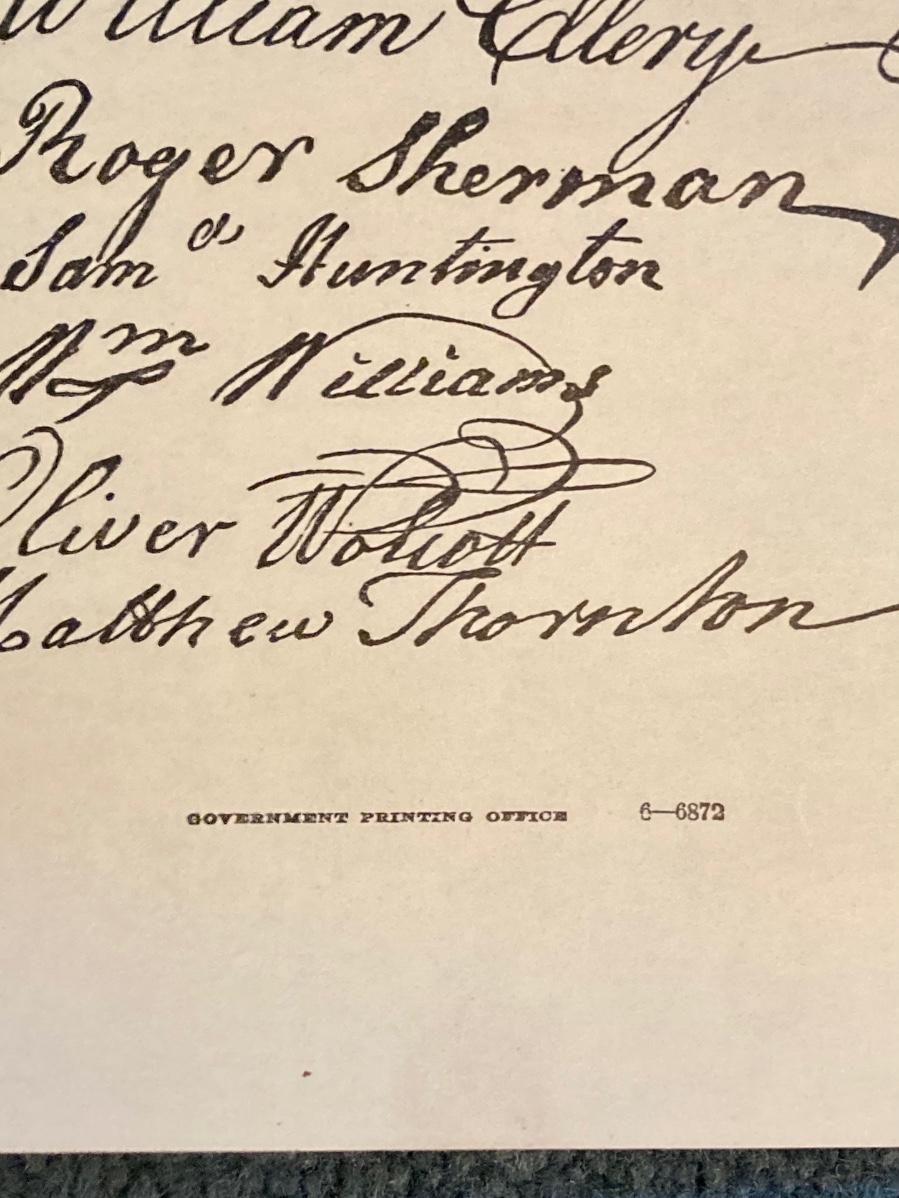 William Ellery
Roger Sherman
Sam^el Huntington
W^m Williams
Oliver Wolcott
Matthew Thornton
GOVERNMENT PRINTING OFFICE 6—6872